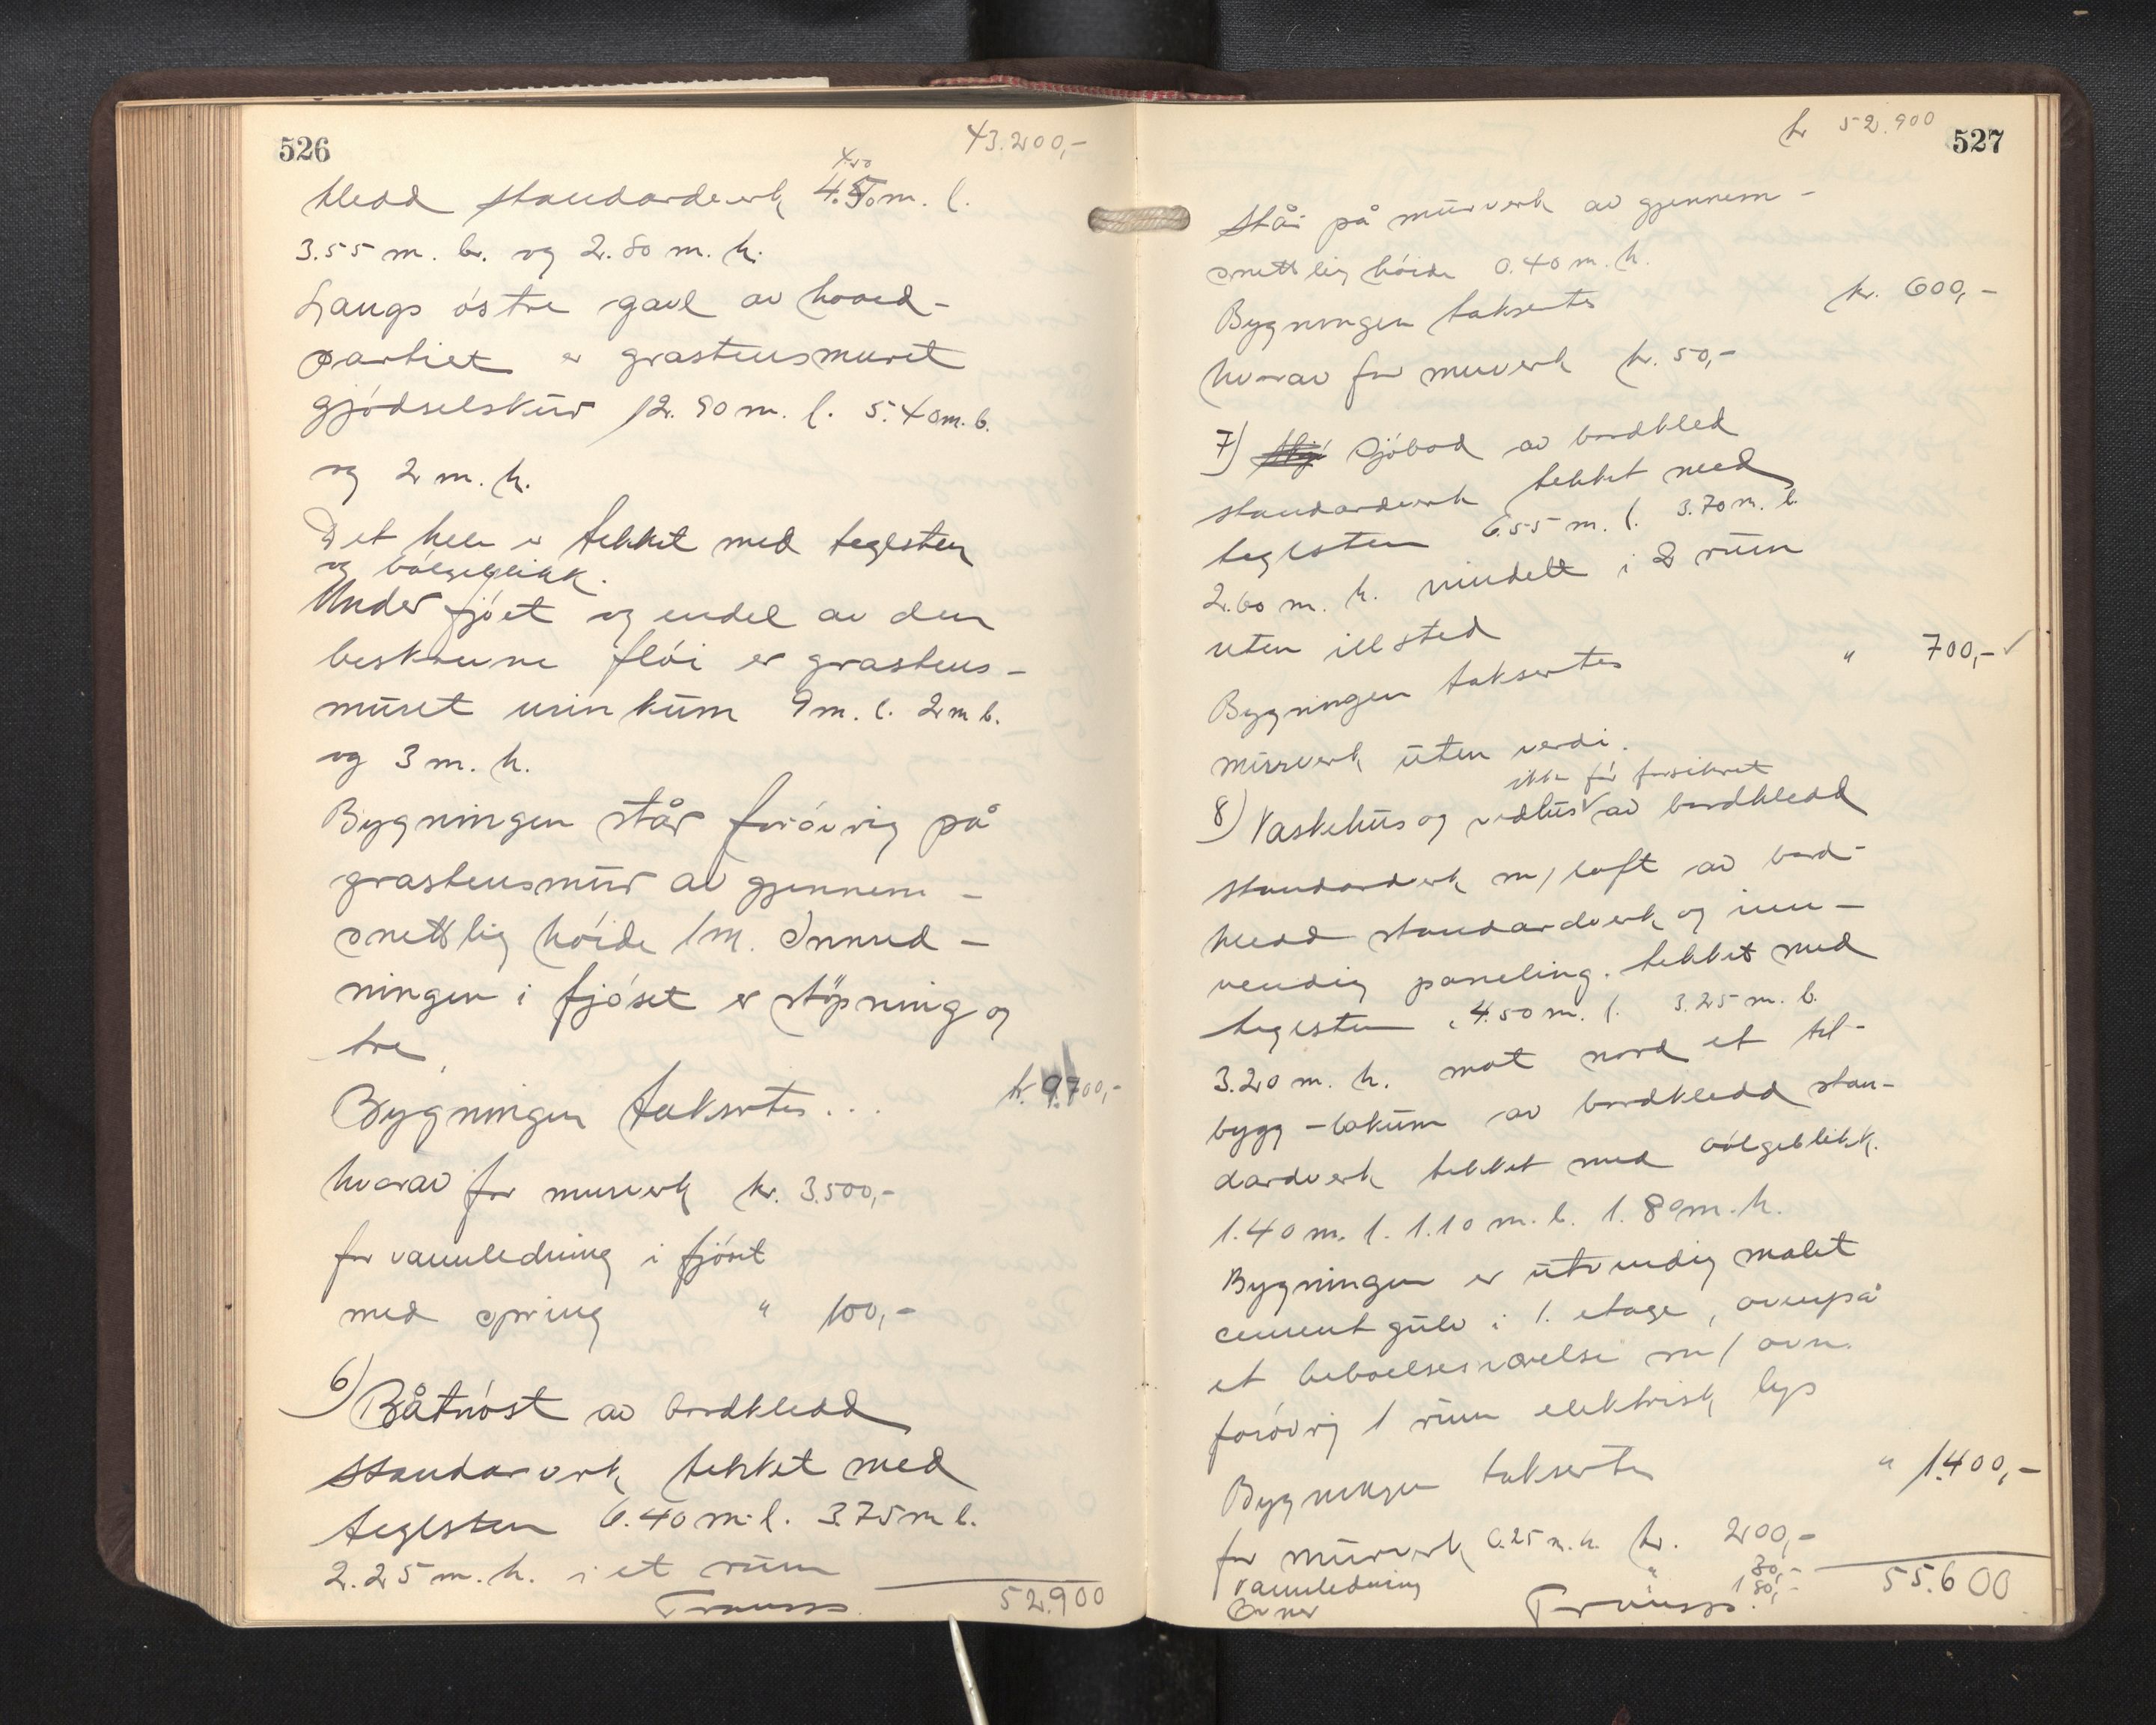 526
43.200,-
kledd standardverk 4.50 m. l.
3.55 m. br. og 2.80 m. h.
Langs östre gavl av hoved-
partiet er grastensmuret
gjödselskur 12.90 m. l. 5.40 m. b.
og 2 m. h.
Det hele er tekket med teglsten
og bölgeblikk.
Under fjöet og endel av den
beskrevne flöi er grastens-
muret urinkum 9 m. l. 2 m b.
og 3 m. h.
Bygningen står forövrig på
grastensmur av gjennem-
snettlig höide 1 m. Innred-
ningen i fjöset er stöpning og
tre
Bygningen takseres... kr. 9.700,-
hvorav for murverk kr. 3.500,-
for vannledning i fjöset
med spring " 100,-
6) Båtnöst av bordkledd
standarverk tekket med
teglsten 6.40 m. l. 3.75 m b.
2.25 m. h. i et rum
Transp. 52.900
kr 52.900
527
står på murverk av gjennem-
snettlig höide 0.40 m. h.
Bygningen takseres kr. 600,-
hvorav for murverk kr. 50,-
7) Sjöbod av bordkled
standardverk tekket med
teglsten 6.55 m. l. 3.70 m. b
2.60 m. h. inndelt i 2 rum
uten illsted
Bygningen takseres " 700,-
murverk uten verdi.
ikke för forsikret
8) Vaskehus og vedhus av bordkledd
standardverk m/ loft av bord-
kledd standardverk og inn-
vendig paneling. tekket med
teglsten, 4.50 m. l. 3.25 m. b.
3.20 m. h. mot nord et til-
bygg - lokum av bordkledd stan-
dardverk tekket med bölgeblikk.
1.40 m. l. 1.10 m. b. 1.80 m. h.
Bygningen er utvendig malet
cementgulv i 1. etage, ovenpå
et beboelsesværelse m/ ovn.
forövrig 1 rum elektrisk lys
Bygningen takseres " 1.400,-
for murverk 0.25 m. h. kr. 200,-
vannledning " 30,-
Ovner
Transp. 55.600